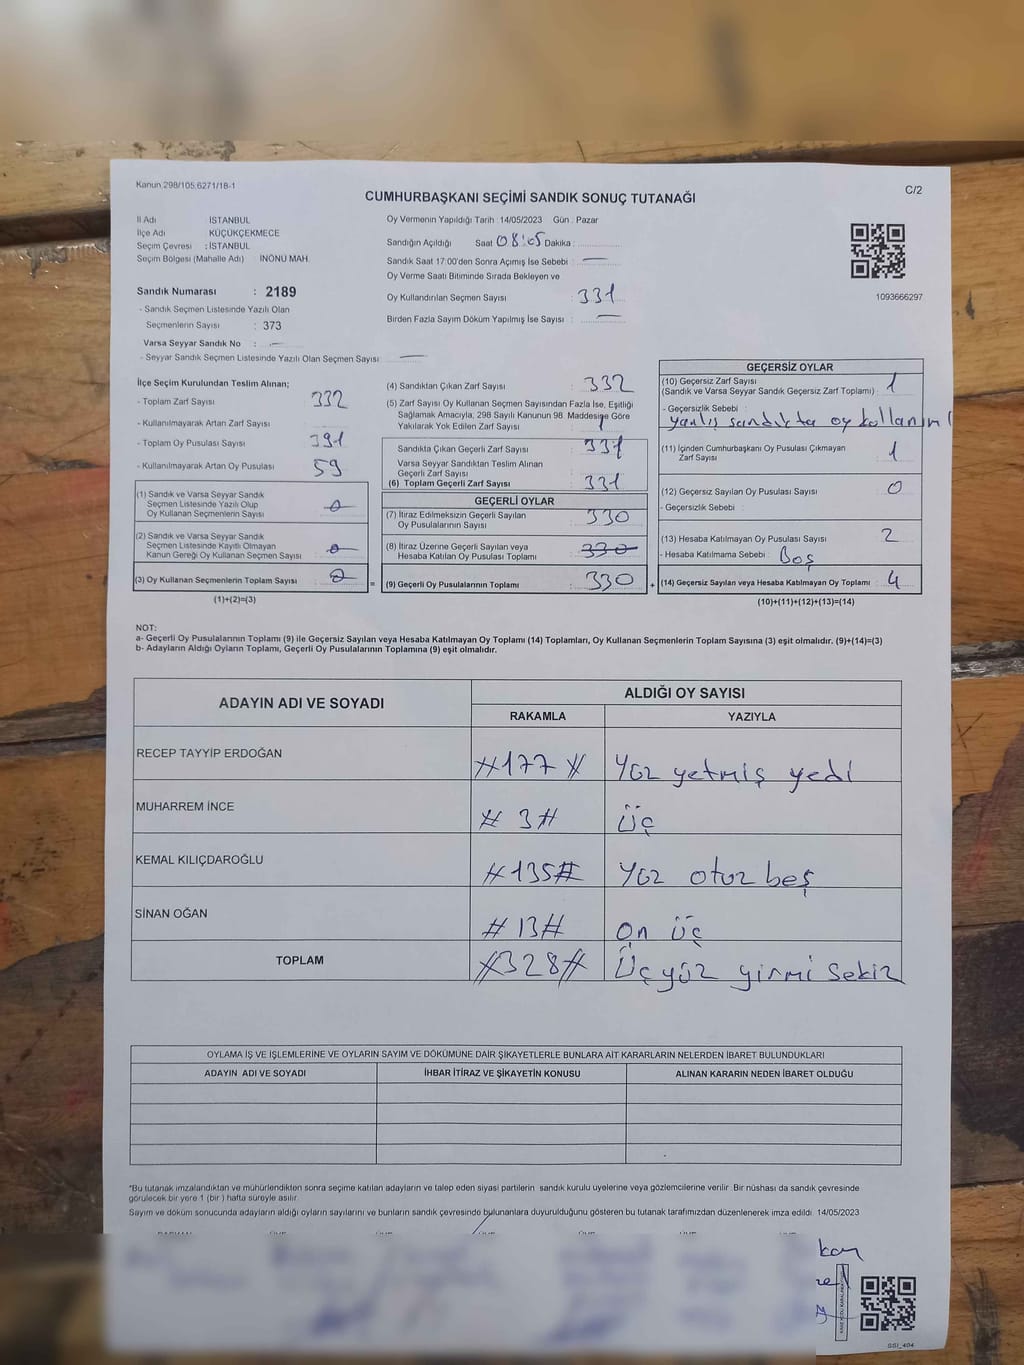 Kanun 298/105.6271/18-1
C/2
CUMHURBAŞKANI SEÇİMİ SANDIK SONUÇ TUTANAĞI
İl Adı İSTANBUL
İlçe Adı KÜÇÜKÇEKMECE
Seçim Çevresi : İSTANBUL
Seçim Bölgesi (Mahalle Adı) İNÖNÜ MAH.
Sandık Numarası : 2189
- Sandık Seçmen Listesinde Yazılı Olan
Seçmenlerin Sayısı : 373
Varsa Seyyar Sandık No : —
- Seyyar Sandık Seçmen Listesinde Yazılı Olan Seçmen Sayısı —
Oy Vermenin Yapıldığı Tarih : 14/05/2023 Gün : Pazar
Sandığın Açıldığı Saat 08:05 Dakika :
Sandık Saat 17:00'den Sonra Açımış İse Sebebi : —
Oy Verme Saati Bitiminde Sırada Bekleyen ve
Oy Kullandırılan Seçmen Sayısı : 331
Birden Fazla Sayım Döküm Yapılmış İse Sayısı : —
1093666297
İlçe Seçim Kurulundan Teslim Alınan;
- Toplam Zarf Sayısı 332
- Kullanılmayarak Artan Zarf Sayısı
- Toplam Oy Pusulası Sayısı 391
- Kullanılmayarak Artan Oy Pusulası 59
(1) Sandık ve Varsa Seyyar Sandık
Seçmen Listesinde Yazılı Olup
Oy Kullanan Seçmenlerin Sayısı : 0
(2) Sandık ve Varsa Seyyar Sandık
Seçmen Listesinde Kayıtlı Olmayan
Kanun Gereği Oy Kullanan Seçmen Sayısı : 0
(3) Oy Kullanan Seçmenlerin Toplam Sayısı : 0 =
(1)+(2)=(3)
(4) Sandıktan Çıkan Zarf Sayısı : 332
(5) Zarf Sayısı Oy Kullanan Seçmen Sayısından Fazla İse, Eşitliği
Sağlamak Amacıyla, 298 Sayılı Kanunun 98. Maddesine Göre
Yakılarak Yok Edilen Zarf Sayısı : 1
Sandıkta Çıkan Geçerli Zarf Sayısı : 331
Varsa Seyyar Sandıktan Teslim Alınan
Geçerli Zarf Sayısı
(6) Toplam Geçerli Zarf Sayısı : 331
GEÇERLİ OYLAR
(7) İtiraz Edilmeksizin Geçerli Sayılan
Oy Pusulalarının Sayısı : 330
(8) İtiraz Üzerine Geçerli Sayılan veya
Hesaba Katılan Oy Pusulası Toplamı : 330
(9) Geçerli Oy Pusulalarının Toplamı : 330 +
GEÇERSİZ OYLAR
(10) Geçersiz Zarf Sayısı
(Sandık ve Varsa Seyyar Sandık Geçersiz Zarf Toplamı) : 1
- Geçersizlik Sebebi :
yanlış sandıkta oy
(11) İçinden Cumhurbaşkanı Oy Pusulası Çıkmayan
Zarf Sayısı : 1
(12) Geçersiz Sayılan Oy Pusulası Sayısı : 0
- Geçersizlik Sebebi :
(13) Hesaba Katılmayan Oy Pusulası Sayısı : 2
- Hesaba Katılmama Sebebi : Boş
(14) Geçersiz Sayılan veya Hesaba Katılmayan Oy Toplamı : 4
(10)+(11)+(12)+(13)=(14)
NOT:
a- Geçerli Oy Pusulalarının Toplamı (9) ile Geçersiz Sayılan veya Hesaba Katılmayan Oy Toplamı (14) Toplamları, Oy Kullanan Seçmenlerin Toplam Sayısına (3) eşit olmalıdır. (9)+(14)=(3)
b- Adayların Aldığı Oyların Toplamı, Geçerli Oy Pusulalarının Toplamına (9) eşit olmalıdır.
ADAYIN ADI VE SOYADI
ALDIĞI OY SAYISI
RAKAMLA YAZIYLA
RECEP TAYYİP ERDOĞAN #177# Yüz yetmiş yedi
MUHARREM İNCE #3# Üç
KEMAL KILIÇDAROĞLU #135# Yüz otuz beş
SİNAN OĞAN #13# On üç
TOPLAM #328# Üçyüz yirmi sekiz
OYLAMA İŞ VE İŞLEMLERİNE VE OYLARIN SAYIM VE DÖKÜMÜNE DAİR ŞİKAYETLERLE BUNLARA AİT KARARLARIN NELERDEN İBARET BULUNDUKLARI
ADAYIN ADI VE SOYADI İHBAR İTİRAZ VE ŞİKAYETİN KONUSU ALINAN KARARIN NEDEN İBARET OLDUĞU
*Bu tutanak imzalandıktan ve mühürlendikten sonra seçime katılan adayların ve talep eden siyasi partilerin sandık kurulu üyelerine veya gözlemcilerine verilir. Bir nüshası da sandık çevresinde
görülecek bir yere 1 (bir ) hafta süreyle asılır.
Sayım ve döküm sonucunda adayların aldığı oyların sayılarını ve bunların sandık çevresinde bulunanlara duyurulduğunu gösteren bu tutanak tarafımızdan düzenlenerek imza edildi. 14/05/2023
SSI_404